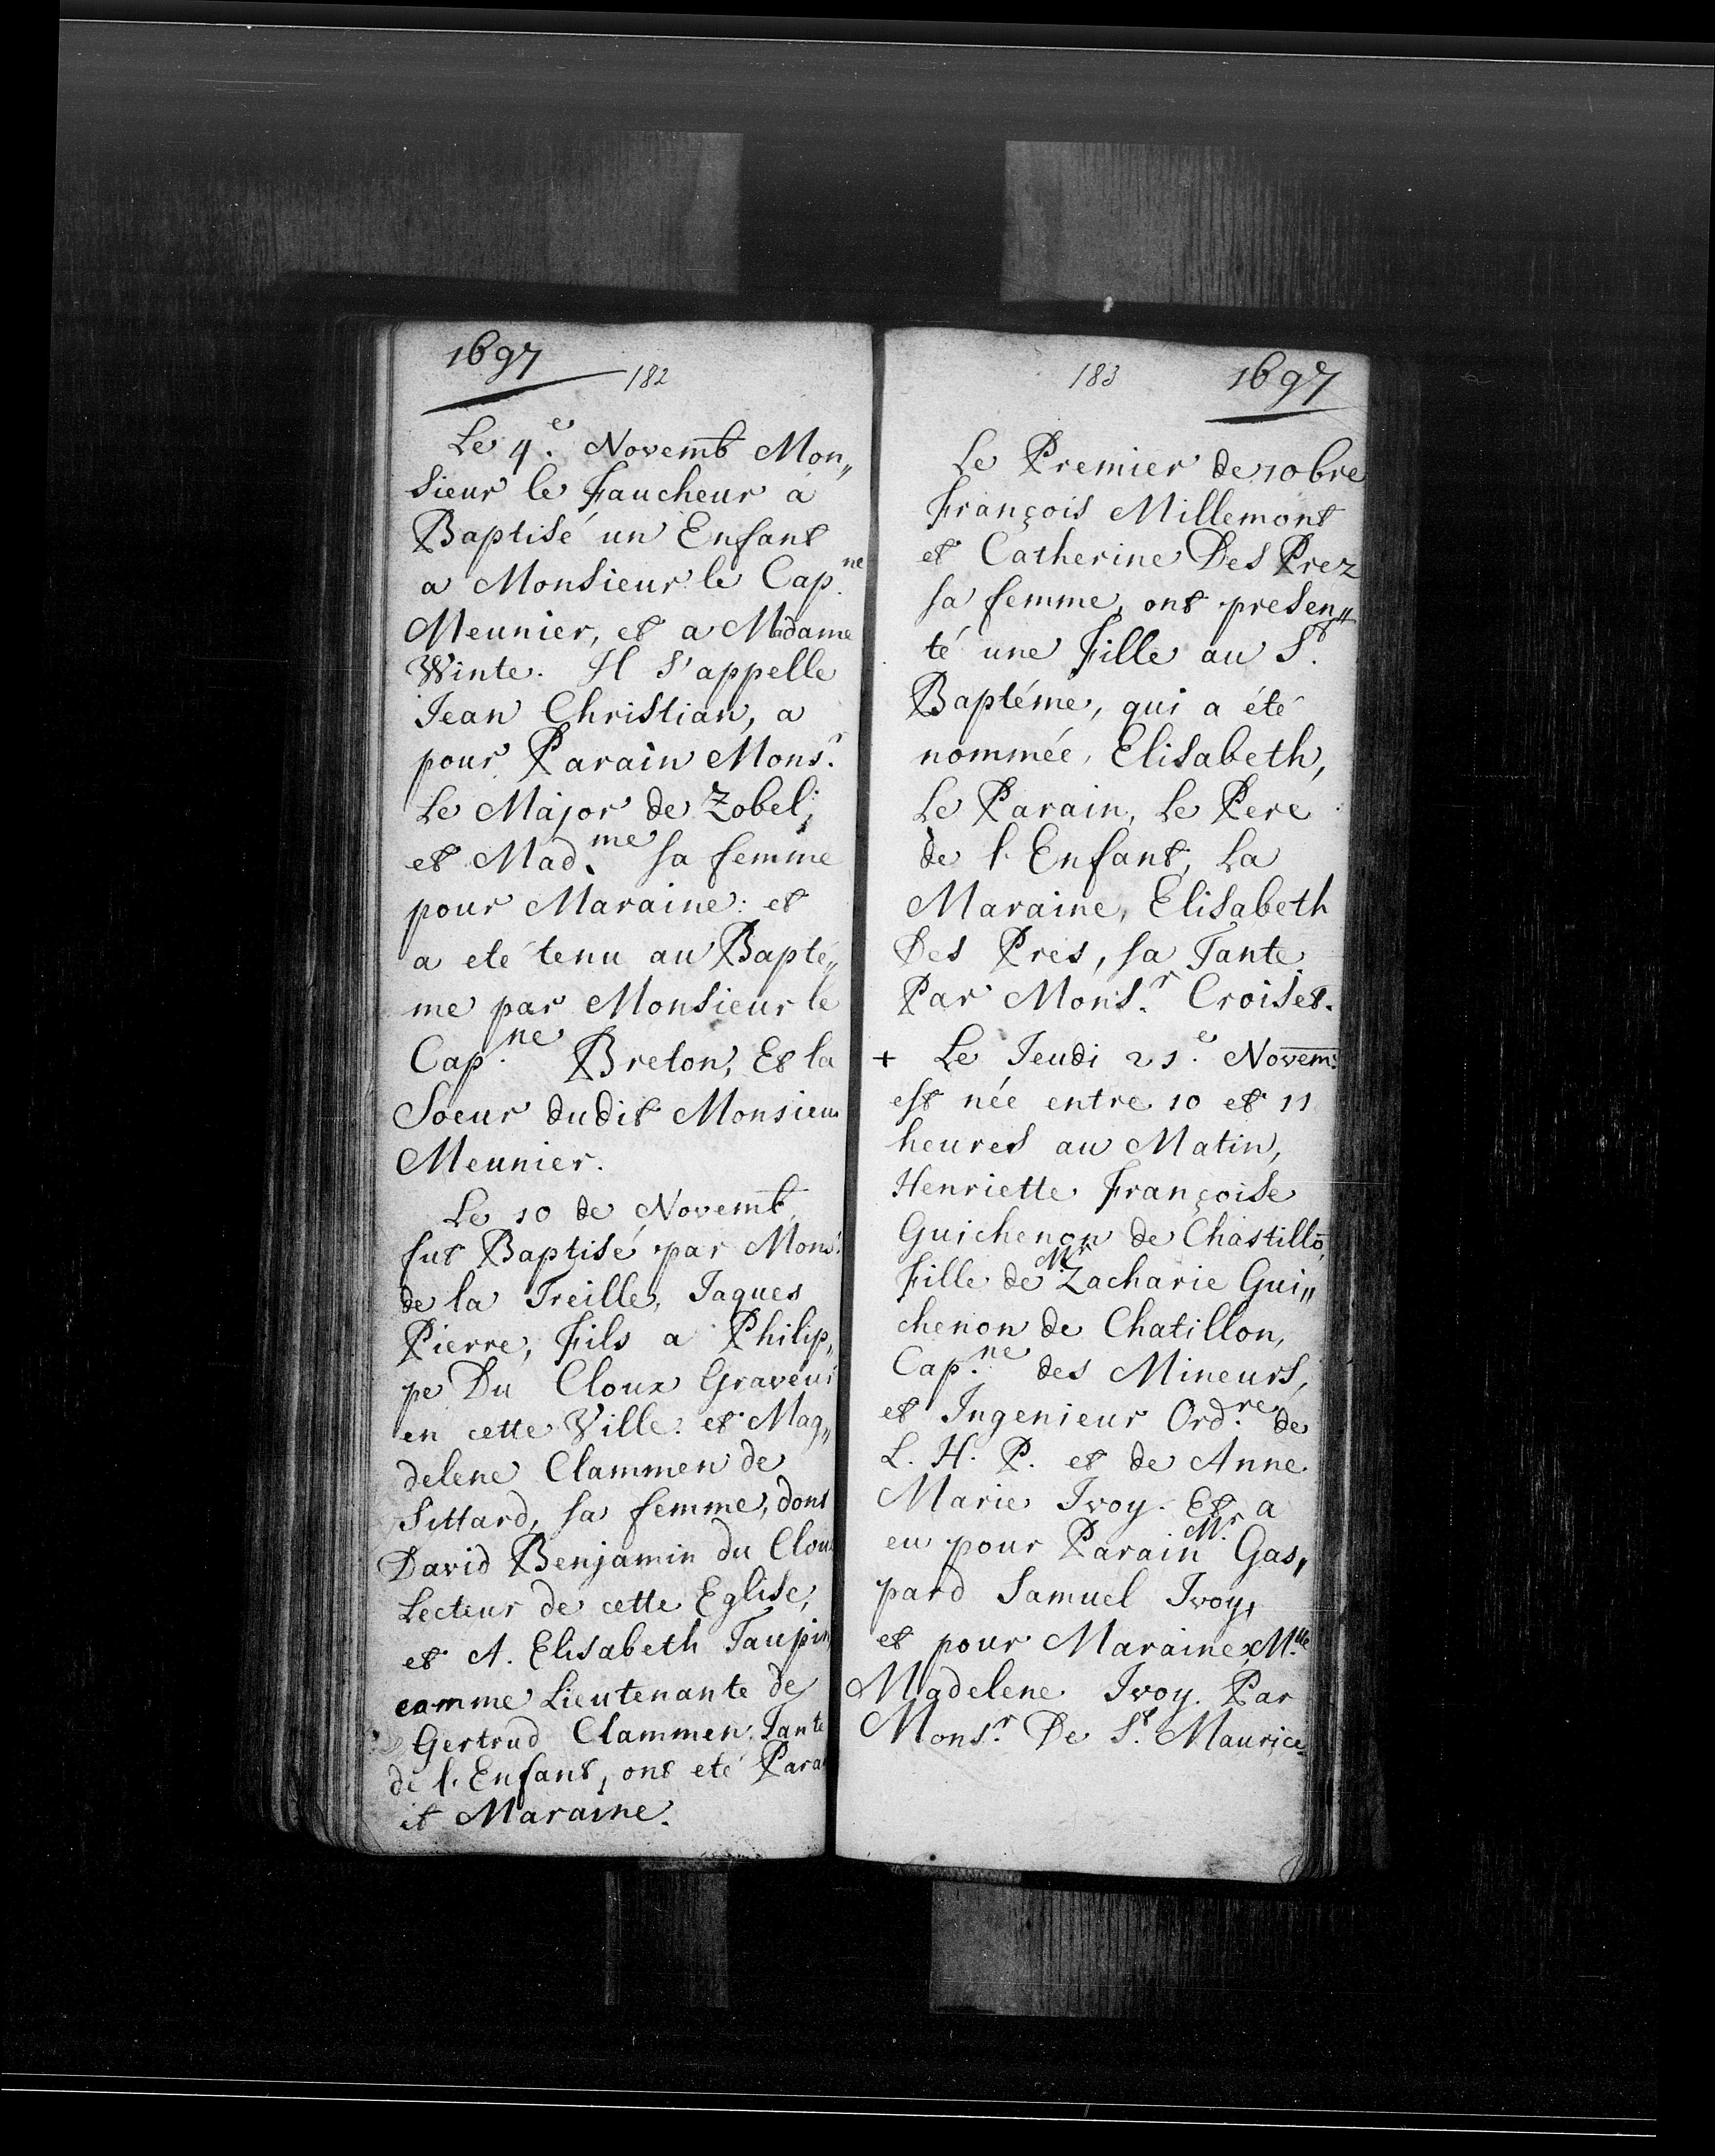 1697
182
Le 4.e Novemb Mon„
sieur le Faucheur a
Baptisé un Enfant
a Monsieur le Cap.ne
Meunier, et a Madame
Winte. Il s'appelle
Jean Christian, a
pour Parain Mons.r
Le Major de Zobel;
et Mad.me sa femme
pour Maraine: et
a eté tenu au Bapté„
me par Monsieur le
Cap.ne Breton, Et la
Soeur dudit Monsieur
Meunier.
Le 10 de Novemb.
fut Baptisé par Mons.r
de la Treille, Jaques
Pierre, Fils a Philip„
pe Du Cloux Graveur
en cette Ville: et Mag„
delene Clammen de
Sittard, sa femme, dont
David Benjamin du Cloux
Lecteur de cette Eglise,
et A. Elisabeth Taupin,
comme Lieutenante de
Gertrud Clammen. Tante
de l'Enfant, ont eté Para
et Maraine.
183
1697
Le Premier de 10bre
François Millemont
et Catherine Des Prez
sa femme, ont presen„
té une Fille au St.
Baptéme, qui a été
nommée, Elisabeth,
Le Parain, Le Pere
de l'Enfant, La
Maraine, Elisabeth
Des Pres, sa Tante
Par Mons.r Croiset.
+ Le Jeudi 21.e Novem:
est née entre 10 et 11
heures au Matin,
Henriette Françoise
Guichenon de Chastillō,
Fille de Mr. Zacharie Gui„
chenon de Chatillon,
Cap.ne des Mineurs,
et Ingenieur Ord.re de
L. H. P. et de Anne
Marie Ivoy. Et a
eu pour Parain Mr. Gas„
pard Samuel Ivoy,
et pour Maraine, M.lle
Madelene Ivoy. Par
Mons.r De St. Maurice.